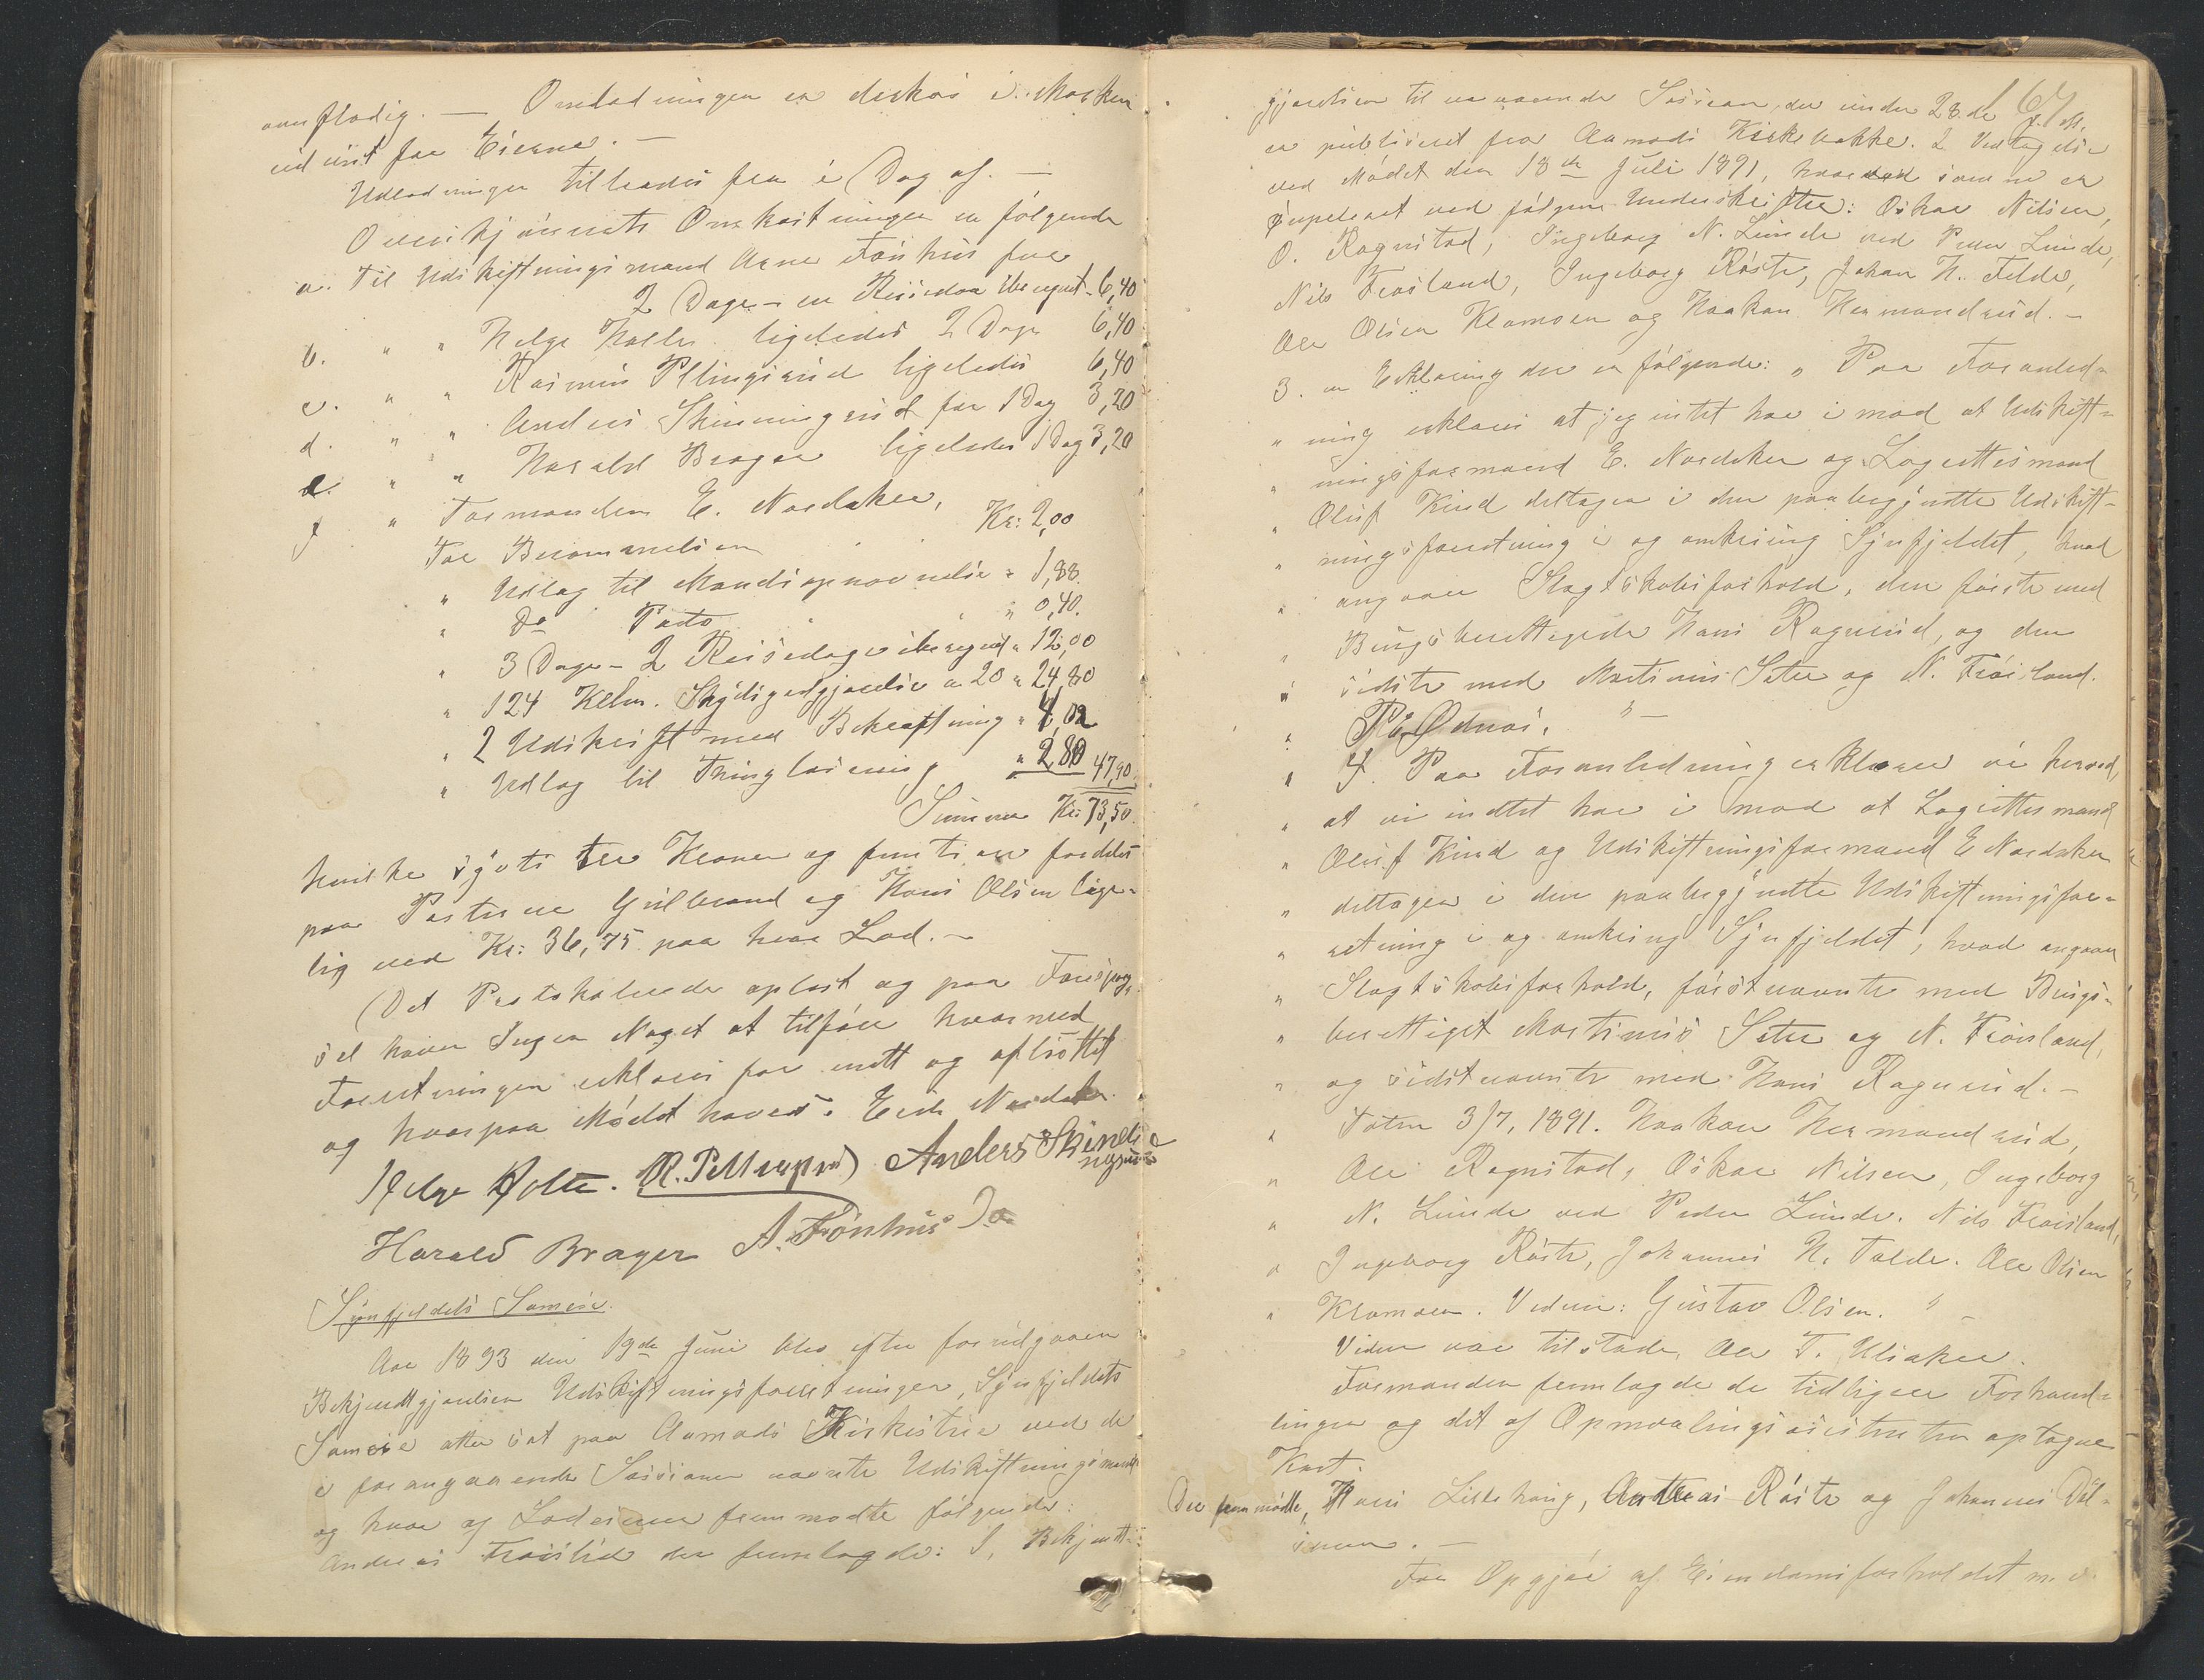 overflødig. — Omladningen er deskas i Marken
udvist for Eierne. —
Udladningen tiltrædes fra i Dag af. —
Overskjønnets Omkostninger er følgende
a. Til Udskiftningsmand Arne Fønhus for
2 Dage – en Reisedag iberegnet – 6,40
b. " " Helge Holte ligeledes 2 Dage 6,40
c. " " Rasmus Pellingsrud ligeledes 6,40
d. " " Anders Skinningsrud for 1 Dag 3,20
e. " " Harald Brager ligeledes 1 Dag 3,20
f " Formanden E. Nordaker,
For Berammelsen Kr: 2,00
" Udlag til Mandsopnævnelse " 1,88.
" Do Porto " 0,40.
" 3 Dage – 2 Reisedage iberegnet " 12,00
" 124 Kilm. Skydsgodtgjørelse a 20 " 24,80
" 2 Udskrift med Bekræftning " 4,02
" Udlag til Thinglæsning " 2,80 47,90
Summa Kr: 73,50.
hvilke sytti tre Kroner og femti øre fordeles
paa Parterne Gulbrand og Hans Olsen lige-
lig med Kr: 36,75 paa hver Lod. —
Det Protokolerede oplæst og paa Forespørg-
sel havde Ingen Noget at tilføre hvormed
Forretningen erklæres for endt og afsluttet
og hvorpaa Mødet hæves. Erik Nordaker.
Helge Holte. R. Pellingsrud Anders Skindingsrud
Harald Brager A. Fønhus
Synfjeldets Sameie.
Aar 1893 den 19de Juni blev efter forudgaaen
Bekjendtgjørelsen Udskiftningsforretningen, Synfjeldets
Sameie atter sat paa Aamodts Kirkestue med de
i foregaaende Sessioner nævnte Udskiftningsmænd
og hvor af Lodeierne fremmødte følgende:
Andreas Frøislid der fremlagde: 1, Bekjendt-
67
gjørelsen til nærværende Session, der under 28. de f. M.
er publiceret fra Aamodts Kirkebakke. 2 Vedtagelse
ved Mødet den 18de Juli 1891, hvorved samme er
suppleret med følgende Underskrifter: Oskar Nilsen,
O. Rognstad, Ingeborg N. Lunde ved Peder Lunde,
Nils Frøisland, Ingeborg Røste, Johan H. Felde,
Ole Olsen Klomoen og Haakon Hermandrud. –
3. en Erklæring der er følgende: „ Paa Foranled-
„ ning erklæres at jeg intet har i mod at Udskift-
„ ningsformand E. Nordaker og Lagrettesmand
„ Oluf Kind deltager i den paabegyndte Udskift-
„ ningsforretning i og omkring Synfjeldet, hvad
„ angaar Slægtskabsforhold, den første med
„ Brugsberettigede Hans Rognrud, og den
„ sidste med Martinus Sæter og N. Frøisland.
„ Odnæs. " –
„ 4. Paa Foranledning erklærer vi herved,
„ at vi indtet har i mod at Lagrettesmand
„ Oluf Kind og Udskiftningsformand E Nordaker
„ deltager i den paabegyndte Udskiftningsfor-
„ retning i og omkring Synfjeldet, hvad angaar
„ Slægtskabsforhold, førstnævnte med Brugs-
„ berettiget Martinus Sæter og N. Frøisland,
„ og sidstnævnte med Hans Rognrud. –
„ Toten 3/7, 1891. Haakon Hermandrud,
„ Ole Rognstad, Oskar Nilsen, Ingeborg
„ N. Lunde ved Peder Lunde. Nils Frøisland,
„ Ingeborg Røste, Johannes H. Følde. Ole Olsen
„ Klomoen. Vidne: Gustav Olsen. " –
Viden var tilstede, Ole T. Ulsaker.
Formanden fremlagde de tidligere Forhand-
linger og det af Opmaalingsassistenten optagne
Kart.
Der fremmødte, Hans Liskehaug, Andreas Røste og Johannes Døl-
. —
For Opgjør af Eiendomsforholdet med